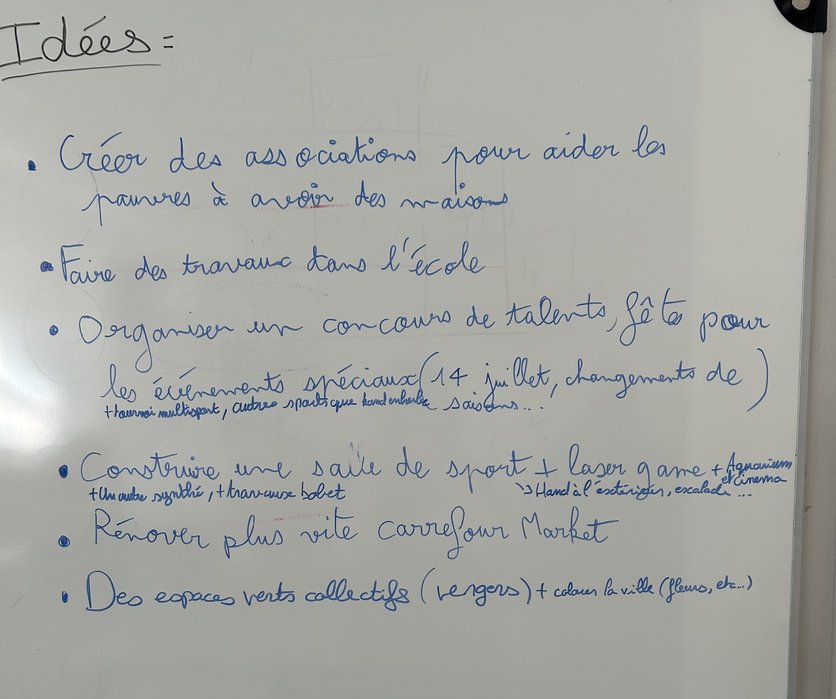 Idées =
• Créer des associations pour aider les
pauvres à avoir des maisons
• Faire des travaux dans l'école
• Organiser un concours de talents, fête pour
les événements spéciaux (14 juillet, changements de )
+ tournoi multisport, autres sports que hand en herbe saisons...
• Construire une salle de sport + laser game + Aquarium
et cinema
+ Un autre synthé, + travaux bobet ↳ Hand à l'extérieur, escalade...
• Rénover plus vite Carrefour Market
• Des espaces verts collectifs (vergers) + colorer la ville (fleurs, etc...)